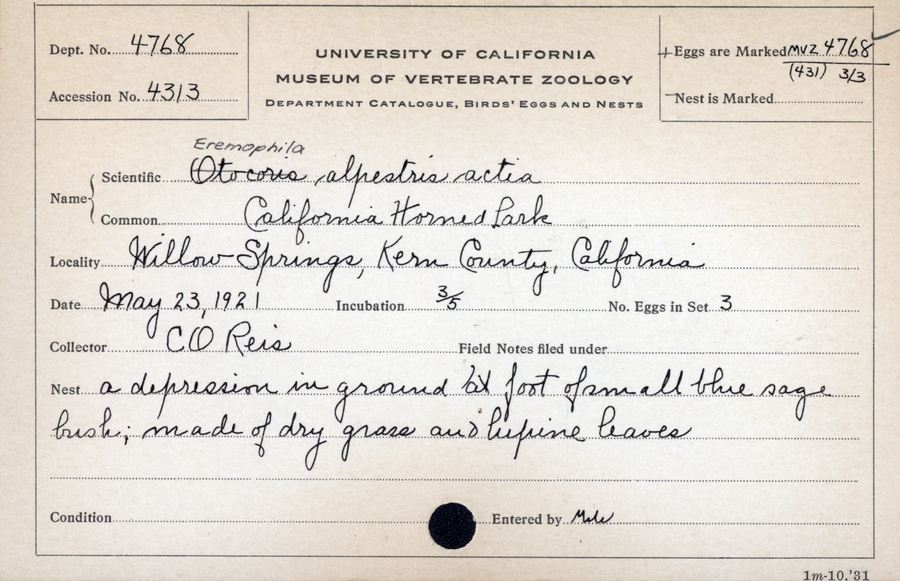 Dept. No. 4768
Accession No. 4313
UNIVERSITY OF CALIFORNIA
MUSEUM OF VERTEBRATE ZOOLOGY
DEPARTMENT CATALOGUE, BIRDS' EGGS AND NESTS
Eggs are Marked MVZ 4768
(431) 3/3
Nest is Marked
Eremophila
Name Scientific Otocoris alpestris actia
Common California Horned Lark
Locality Willow Springs, Kern County, California
Date May 23, 1921 Incubation 3/5 No. Eggs in Set 3
Collector C O Reis Field Notes filed under
Nest a depression in ground at foot of small blue sage
bush; made of dry grass and lupine leaves
Condition Entered by
1m-10,'31